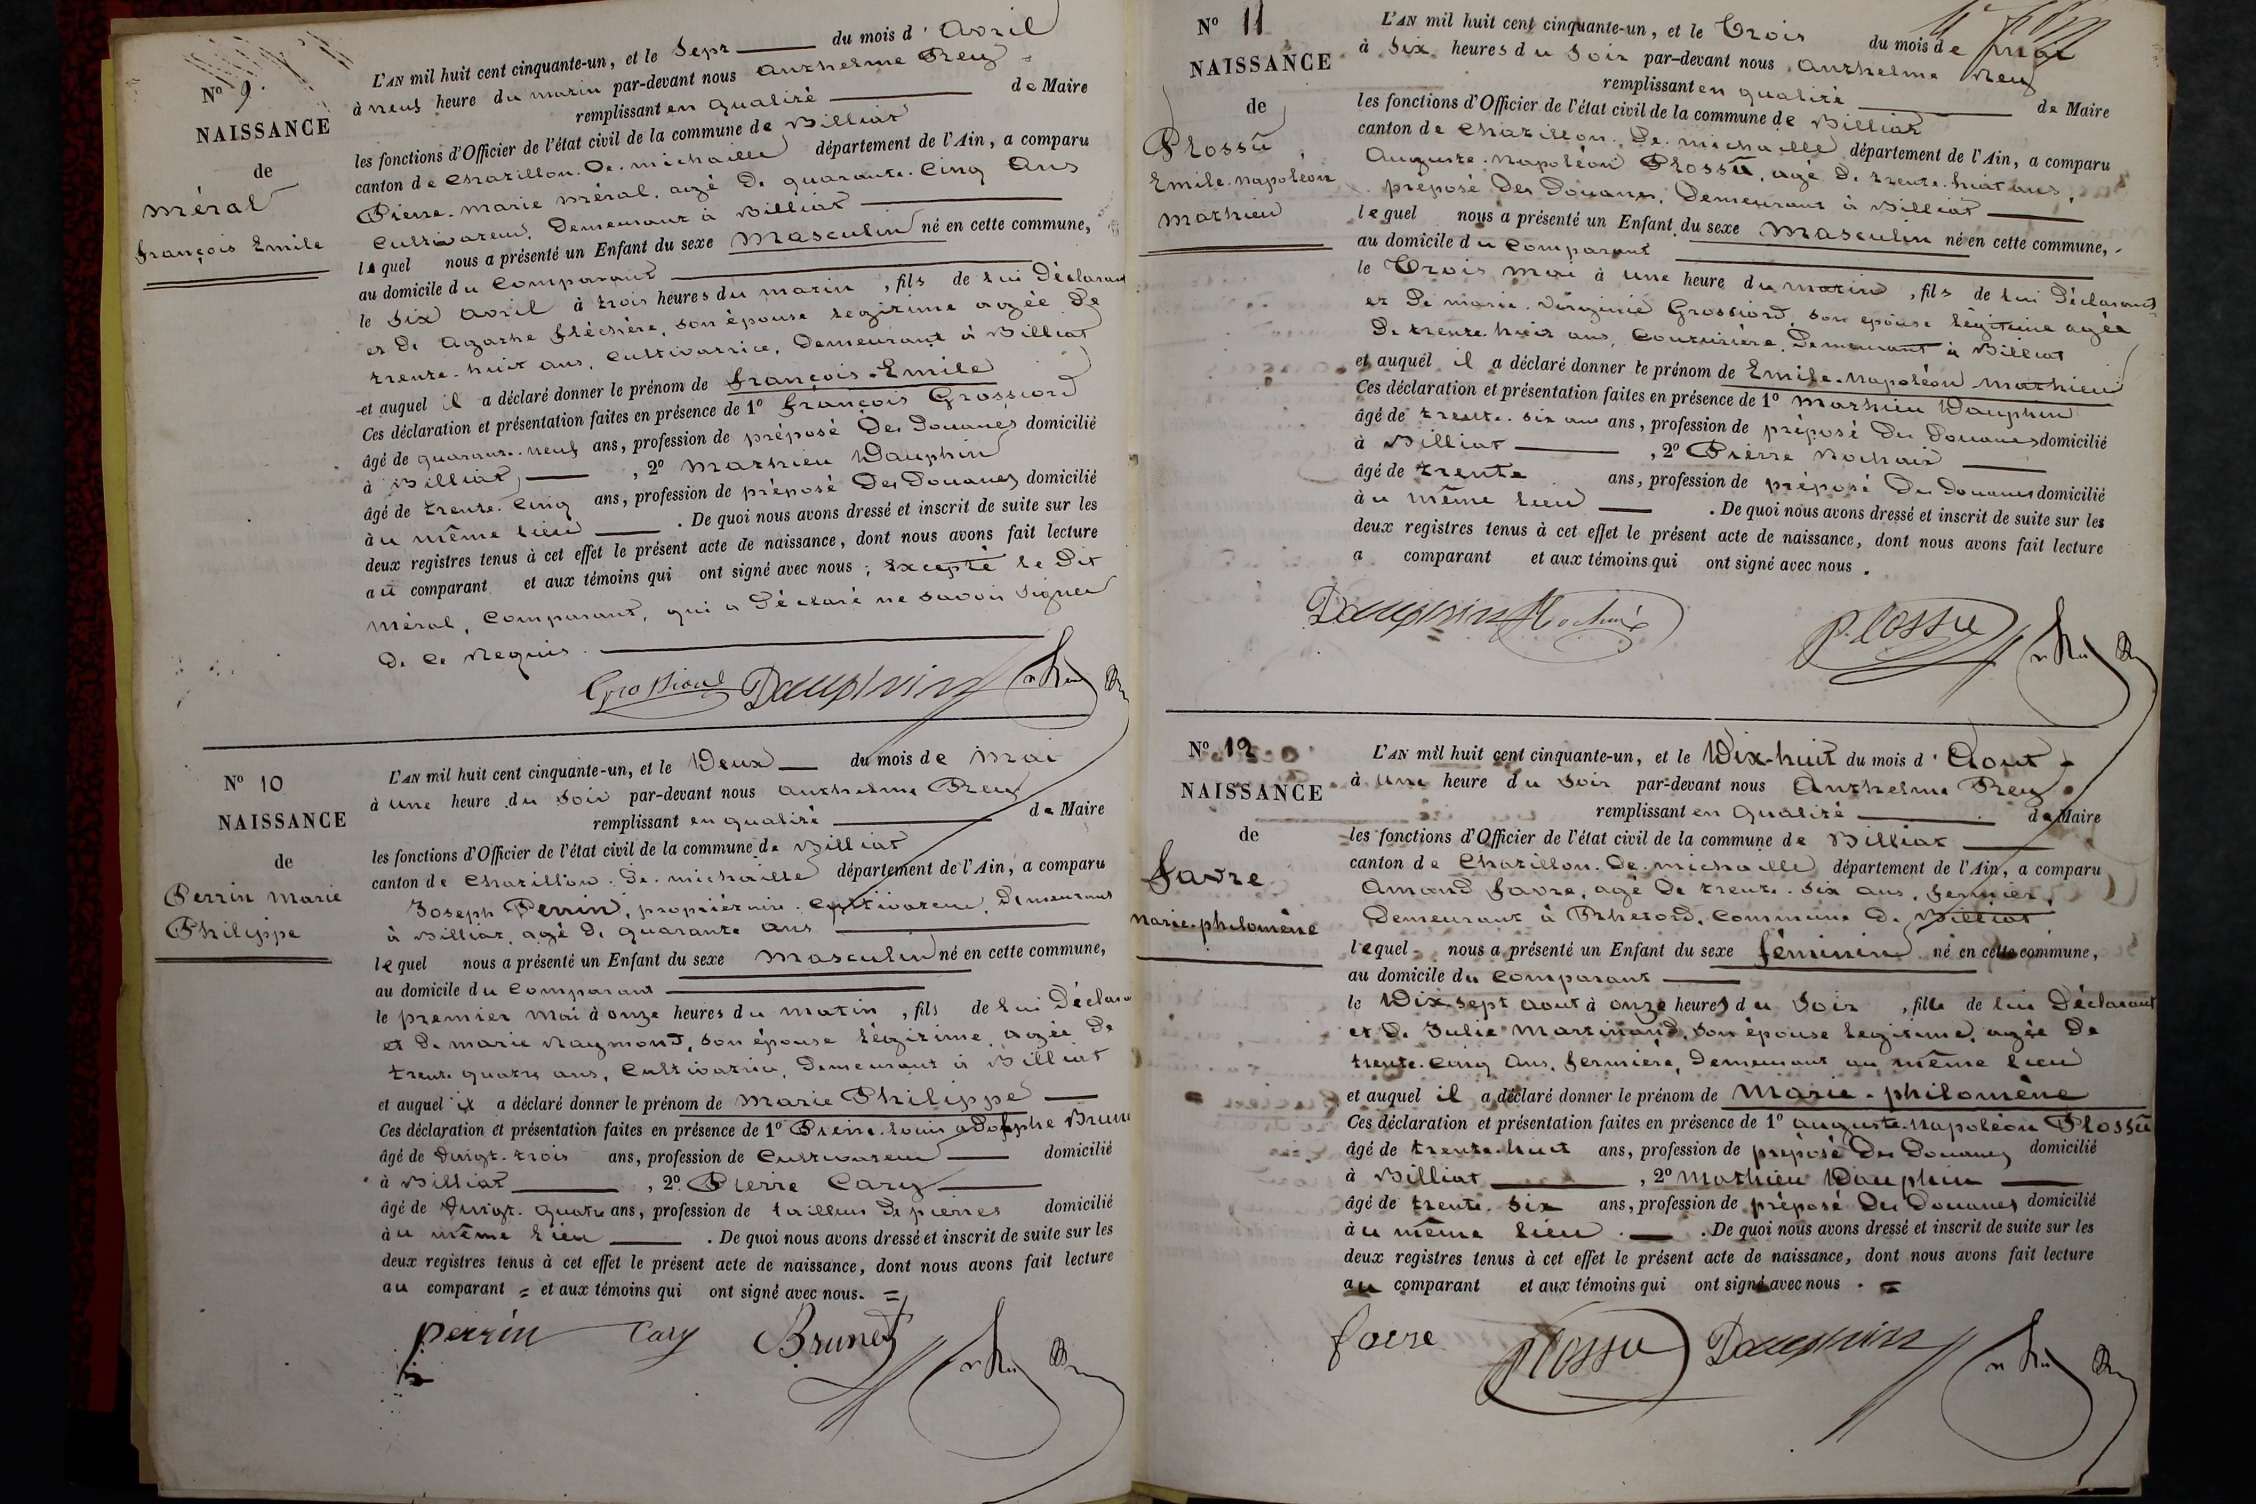 N° 9.
NAISSANCE
de
méral
françois Emile
L'AN mil huit cent cinquante-un, et le Sept du mois d'Avril
à neuf heure du matin par-devant nous anthelme Rey
remplissant en qualité de Maire
les fonctions d'Officier de l'état civil de la commune de Billiat
canton de Chatillon. De. michaille département de l'Ain, a comparu
Pierre. Marie méral. agé De quarante. Cinq Ans
Cultivateur, Demeurant à Billiat
lequel nous a présenté un Enfant du sexe Masculin né en cette commune,
au domicile du Comparant
le six avril à trois heures du matin, fils de lui Déclarant
et De Agathe fléchère, son épouse legitime agée De
trente-huit ans, Cultivatrice, Demeurant à Billiat
et auquel il a déclaré donner le prénom de françois-Emile
Ces déclaration et présentation faites en présence de 1° françois Grossiord
âgé de quarante. neuf ans, profession de préposé Des Douanes domicilié
à Billiat, 2° Mathieu Dauphin
âgé de trente. Cinq ans, profession de préposé Des Douanes domicilié
au même lieu. De quoi nous avons dressé et inscrit de suite sur les
deux registres tenus à cet effet le présent acte de naissance, dont nous avons fait lecture
au comparant et aux témoins qui ont signé avec nous; Excepté le Dit
Méral, Comparant, qui a Déclaré ne savoir signer
De Ce Requis.
Grossiord Dauphin
N° 10
NAISSANCE
de
Perrin Marie
Philippe
L'AN mil huit cent cinquante-un, et le Deux du mois de Mai
à une heure du Soir par-devant nous anthelme Rey
remplissant en qualité de Maire
les fonctions d'Officier de l'état civil de la commune de Billiat
canton de Chatillon. De. michaille département de l'Ain, a comparu
Joseph Perrin, propriétaire. Cultivateur, Demeurant
à Billiat, agé De quarante ans
lequel nous a présenté un Enfant du sexe Masculin né en cette commune,
au domicile du Comparant
le premier Mai à onze heures du matin, fils de lui Déclarant
et De marie Raymond, son épouse légitime, agée De
trente quatre ans, Cultivatrice, Demeurant à Billiat
et auquel il a déclaré donner le prénom de Marie Philippe
Ces déclaration et présentation faites en présence de 1° Pierre. Louis adolphe Brunet
âgé de vingt-trois ans, profession de Cultivateur domicilié
à Billiat, 2° Pierre Cary
âgé de vingt. quatre ans, profession de tailleur De pierres domicilié
au même Lieu. De quoi nous avons dressé et inscrit de suite sur les
deux registres tenus à cet effet le présent acte de naissance, dont nous avons fait lecture
au comparant = et aux témoins qui ont signé avec nous. =
perrin Cary Brunet
N° 11
NAISSANCE
de
Plossu
Emile. Napoléon
Mathieu
L'AN mil huit cent cinquante-un, et le Trois du mois de Mai
à Six heures du Soir par-devant nous anthelme Rey
remplissant en qualité de Maire
les fonctions d'Officier de l'état civil de la commune de Billiat
canton de Chatillon. De. michaille département de l'Ain, a comparu
Auguste. Napoléon Plossu, agé De trente. huit ans,
préposé Des Douanes, Demeurant à Billiat
lequel nous a présenté un Enfant du sexe Masculin né en cette commune,
au domicile du Comparant
le Trois mai à une heure du matin, fils de lui Déclarant
et De marie. virginie Grossiord son épouse légitime agée
De trente. huit ans, Couturière, Demeurant à Billiat
et auquel il a déclaré donner le prénom de Emile. Napoléon Mathieu
Ces déclaration et présentation faites en présence de 1° Mathieu Dauphin
âgé de trente. six ans ans, profession de préposé Des Douanes domicilié
à Billiat, 2° Pierre Rochaix
âgé de trente ans, profession de préposé Des Douanes domicilié
au même lieu. De quoi nous avons dressé et inscrit de suite sur les
deux registres tenus à cet effet le présent acte de naissance, dont nous avons fait lecture
a comparant et aux témoins qui ont signé avec nous.
Dauphin Rochaix Plossu
N° 12
NAISSANCE
de
favre
Marie. philomène
L'AN mil huit cent cinquante-un, et le Dix-huit du mois d'Aout
à une heure du Soir par-devant nous Anthelme Rey
remplissant en qualité de Maire
les fonctions d'Officier de l'état civil de la commune de Billiat
canton de Chatillon. De. michaille département de l'Ain, a comparu
Amand favre, agé De trente. six ans, fermier,
Demeurant à Rhetord, Commune De Billiat
lequel nous a présenté un Enfant du sexe féminin né en cette commune,
au domicile du Comparant
le Dix. sept aout à onze heures du Soir, fille de lui Déclarant
et De Julie Martinand, son épouse legitime, agée De
trente. Cinq Ans, fermière, Demeurant au même lieu
et auquel il a déclaré donner le prénom de Marie-philomène
Ces déclaration et présentation faites en présence de 1° auguste. Napoléon Plossu
âgé de trente. huit ans, profession de préposé Des Douanes domicilié
à Billiat, 2° Mathieu Dauphin
âgé de trente. six ans, profession de préposé Des Douanes domicilié
au même lieu. De quoi nous avons dressé et inscrit de suite sur les
deux registres tenus à cet effet le présent acte de naissance, dont nous avons fait lecture
au comparant et aux témoins qui ont signé avec nous. =
favre Plossu Dauphin